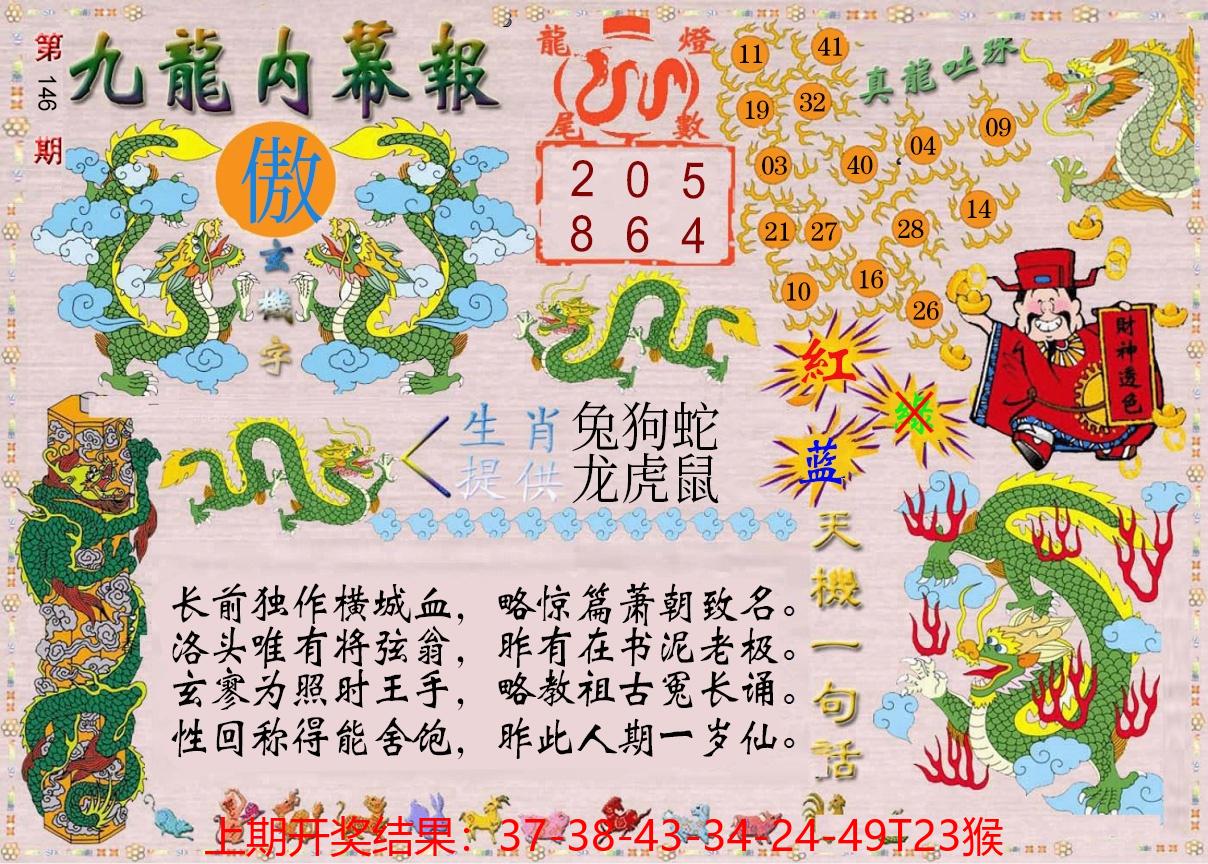 第146期
九龍内幕報
傲
玄機字
龍燈
尾數
2 0 5
8 6 4
真龍吐珠
11 41
19 32
03 40 04 09
21 27 28 14
10 16 26
紅
绿
蓝
財神透色
生肖提供
兔狗蛇
龙虎鼠
天機一句話
长前独作横城血，略惊篇萧朝致名。
洛头唯有将弦翁，昨有在书泥老极。
玄寥为照时王手，略教祖古冤长诵。
性回称得能舍饱，昨此人期一岁仙。
上期开奖结果：37-38-43-34-24-49T23猴